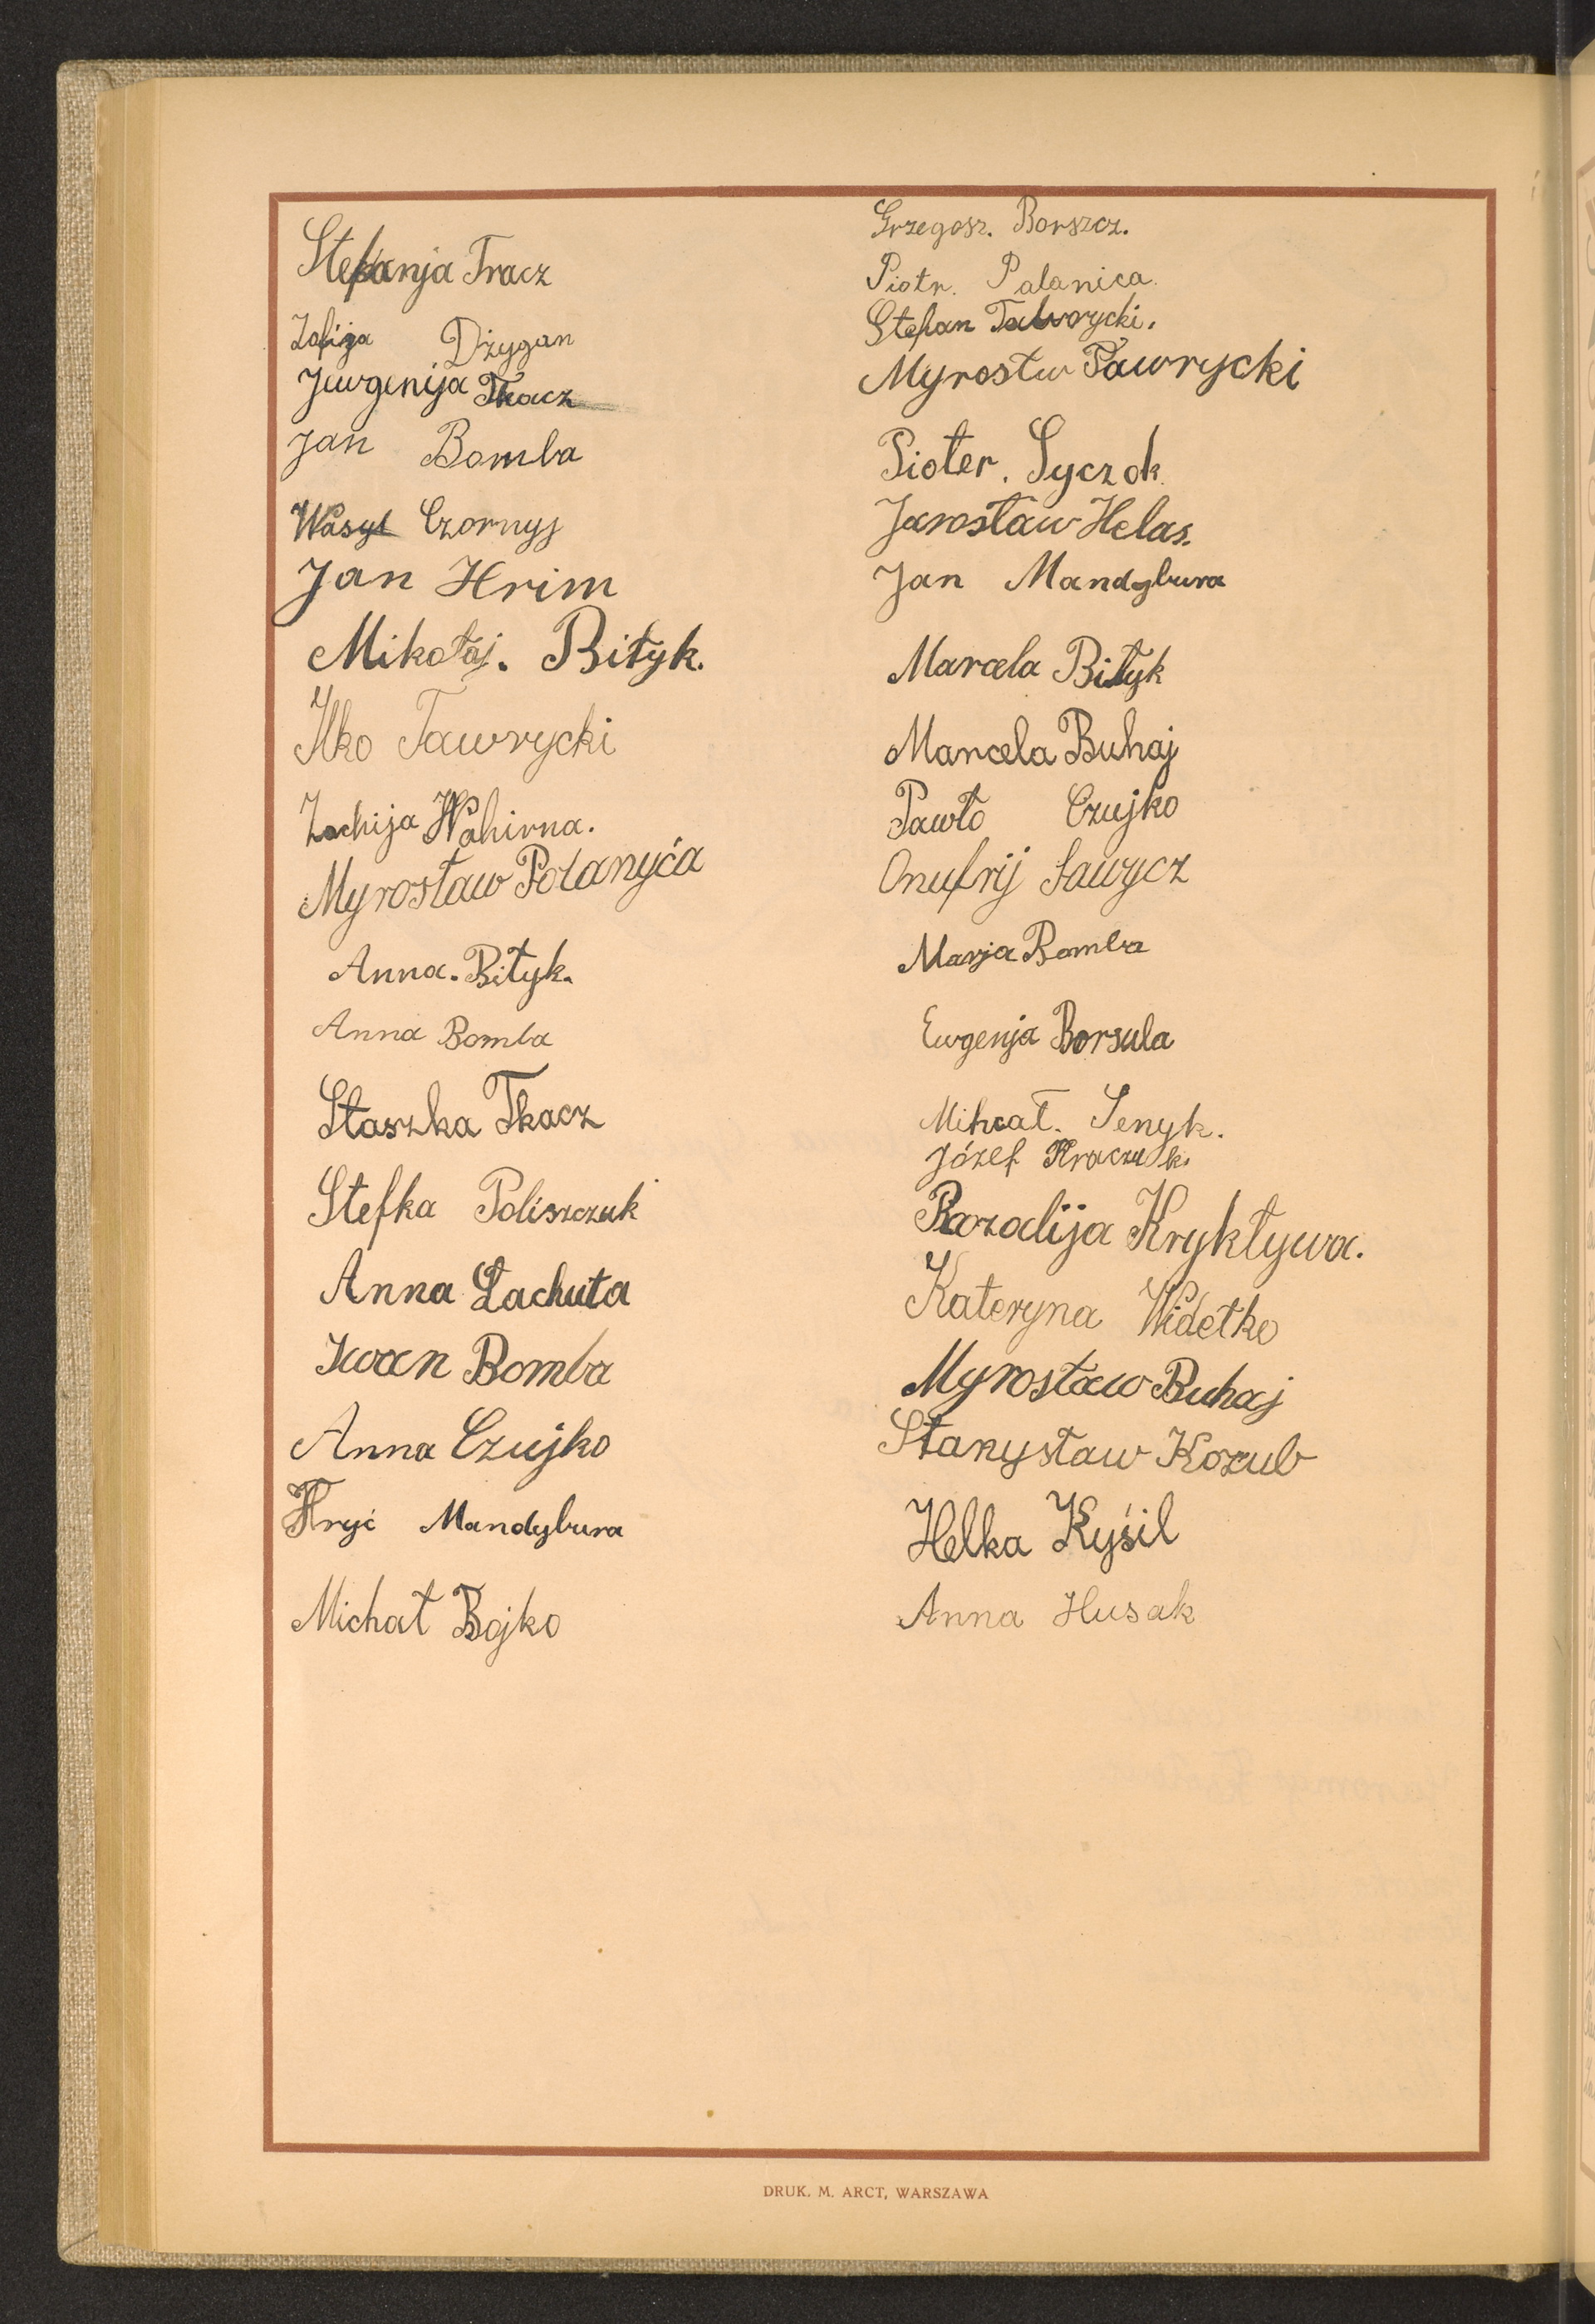 Stefanja Tracz
Zofija Dżygan
Jewgenija Tkacz
Jan Bomba
Wasyl Czornyj
Jan Hrim
Mikołaj. Bityk.
Ilko Tawrycki
Zochija Wahirna.
Myrosław Połanyća
Anna. Bityk.
Anna Bomba
Staszka Tkacz
Stefka Poliszczuk
Anna Łachuta
Iwan Bomba
Anna Czujko
Hryć Mandybura
Michał Bojko
Grzegosz. Borszcz.
Piotr. Palanica.
Stefan Taworycki.
Myrosłw Tawrycki
Pioter. Syczok.
Jarosław Helas.
Jan Mandybura
Marcela Bityk
Marcela Buhaj
Pawło Czujko
Onufrij Sawycz
Marja Bomba
Ewgenja Borsula
Mihcał. Senyk.
Józef Kraczuk.
Rozalija Kryktywa.
Kateryna Widełko
Myrosław Buhaj
Stanysław Kozub
Helka Kyśil
Anna Husak
DRUK. M. ARCT, WARSZAWA